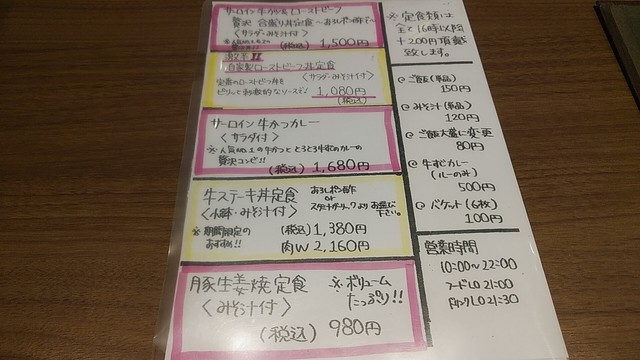 サーロイン牛かつ&ローストビーフ
贅沢 合盛り丼定食 ~おろしポン酢で~
<サラダ・みそ汁付>
(税込) 1,500円
激辛!!
自家製ローストビーフ丼定食
<サラダ・みそ汁付>
定番のローストビーフ丼を
ピリッと刺激的なソースで!
1,080円
(税込)
サーロイン 牛かつカレー
<サラダ付>
※人気No.1の牛かつと とろとろ牛すじカレーの
贅沢コンビ!!
(税込) 1,680円
牛ステーキ丼定食
<小鉢・みそ汁付>
おろしポン酢
or
スタミナガーリック より お選び下さい。
※期間限定の
おすすめ!!
(税込) 1,380円
肉W 2,160円
豚生姜焼定食
<みそ汁付>
※ボリューム
たっぷり!!
(税込) 980円
※定食類は
全て16時以降
+200円頂戴
致します。
@ ご飯(単品)
150円
@ みそ汁(単品)
120円
@ ご飯大盛に変更
80円
@ 牛すじカレー
(ルーのみ)
500円
@ バケット(6枚)
100円
営業時間
10:00~22:00
フードLO 21:00
ドリンクLO 21:30